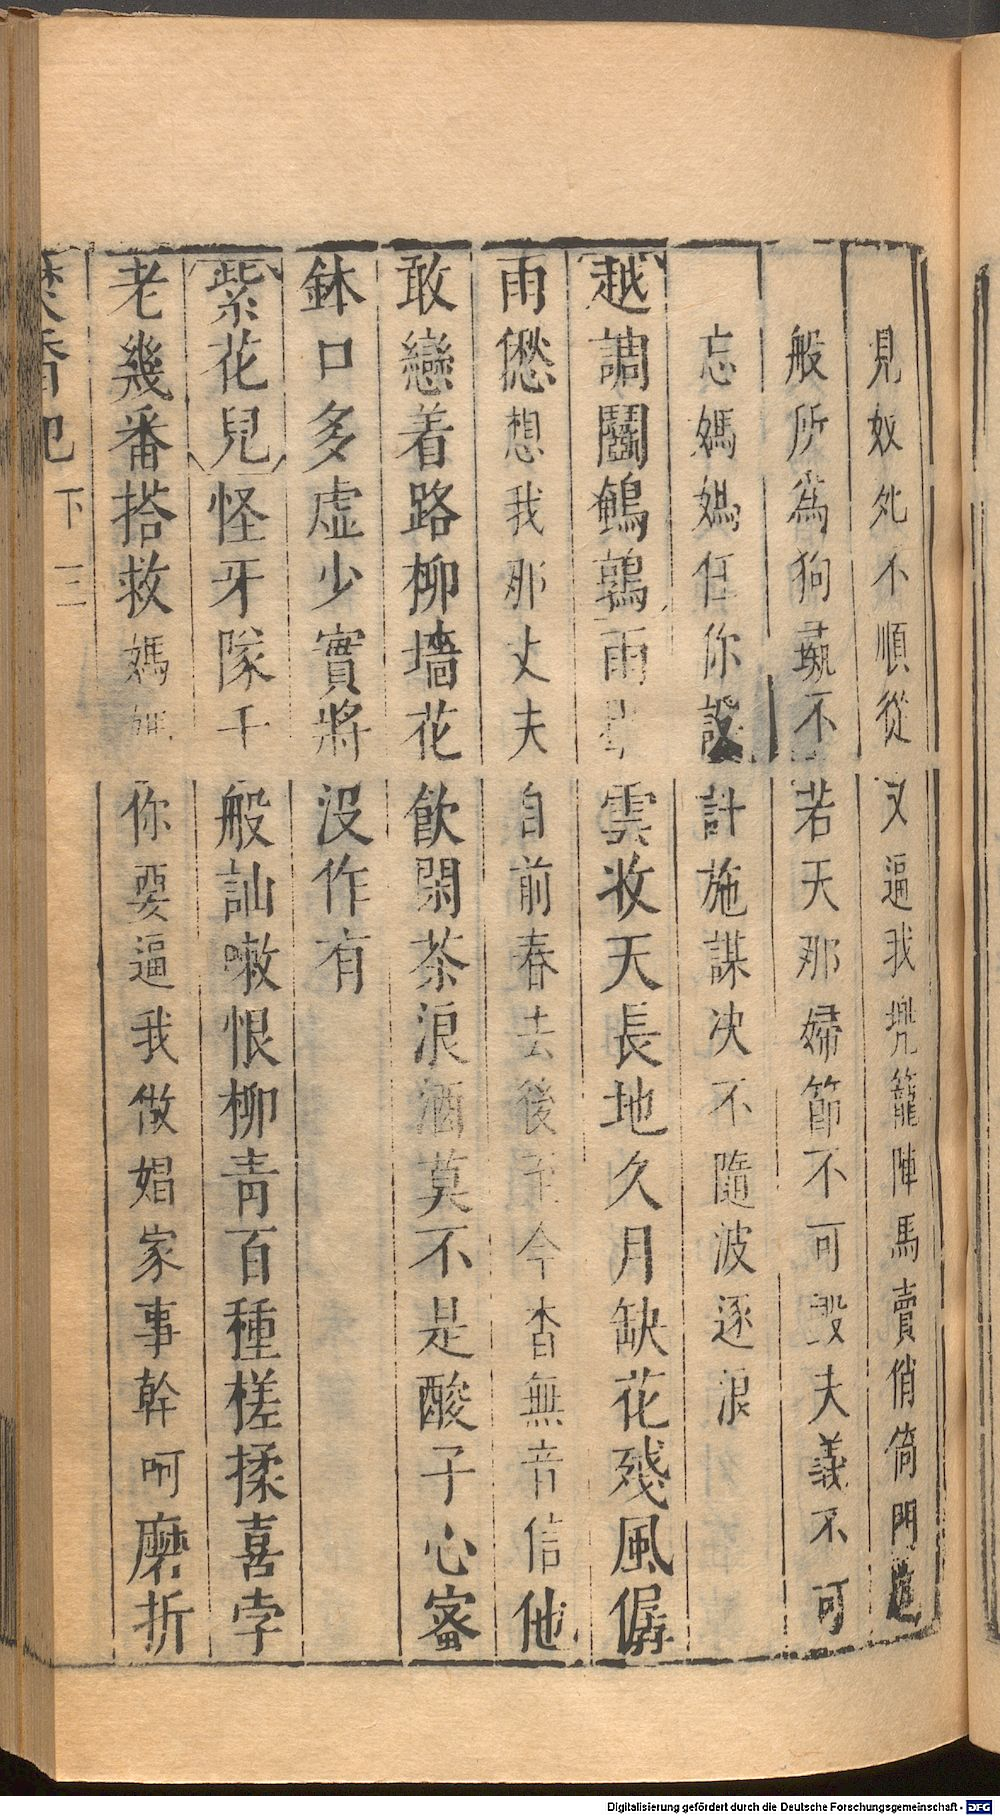 見奴処不順從又逼我塊籠陣馬賣俏倚門
般所爲狗彘不若天那婦節不可毁夫義不可
忘媽媽任你設計施謀决不隨波逐浪
越調鬭鵪鶉雨 雲收天長地久月缺花殘風僝
雨僽想我那丈夫自前春去後至今杳無音信他
敢戀着路柳墻花飲閑茶浪酒莫不是酸子心窰
鉢口多虛少實將沒作有
紫花兒怪牙隊千般訕嗽恨柳青百種搓揉喜孛
老幾番搭救媽媽你要逼我做娼家事幹呵磨折
焚香記 下 三
Digitalisierung gefördert durch die Deutsche Forschungsgemeinschaft - DFG